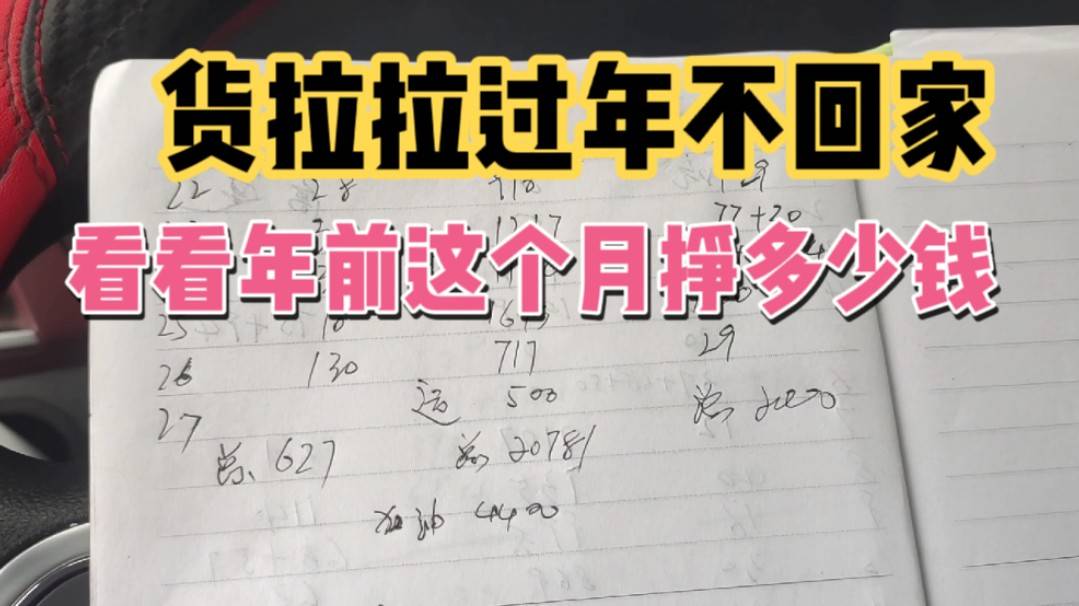 货拉拉过年不回家
22 28 718 29
1217 77+20
看看年前这个月挣多少钱
25
26 130 717 29
运 500
27 总 2000
总 627 总 20781
加油 4400